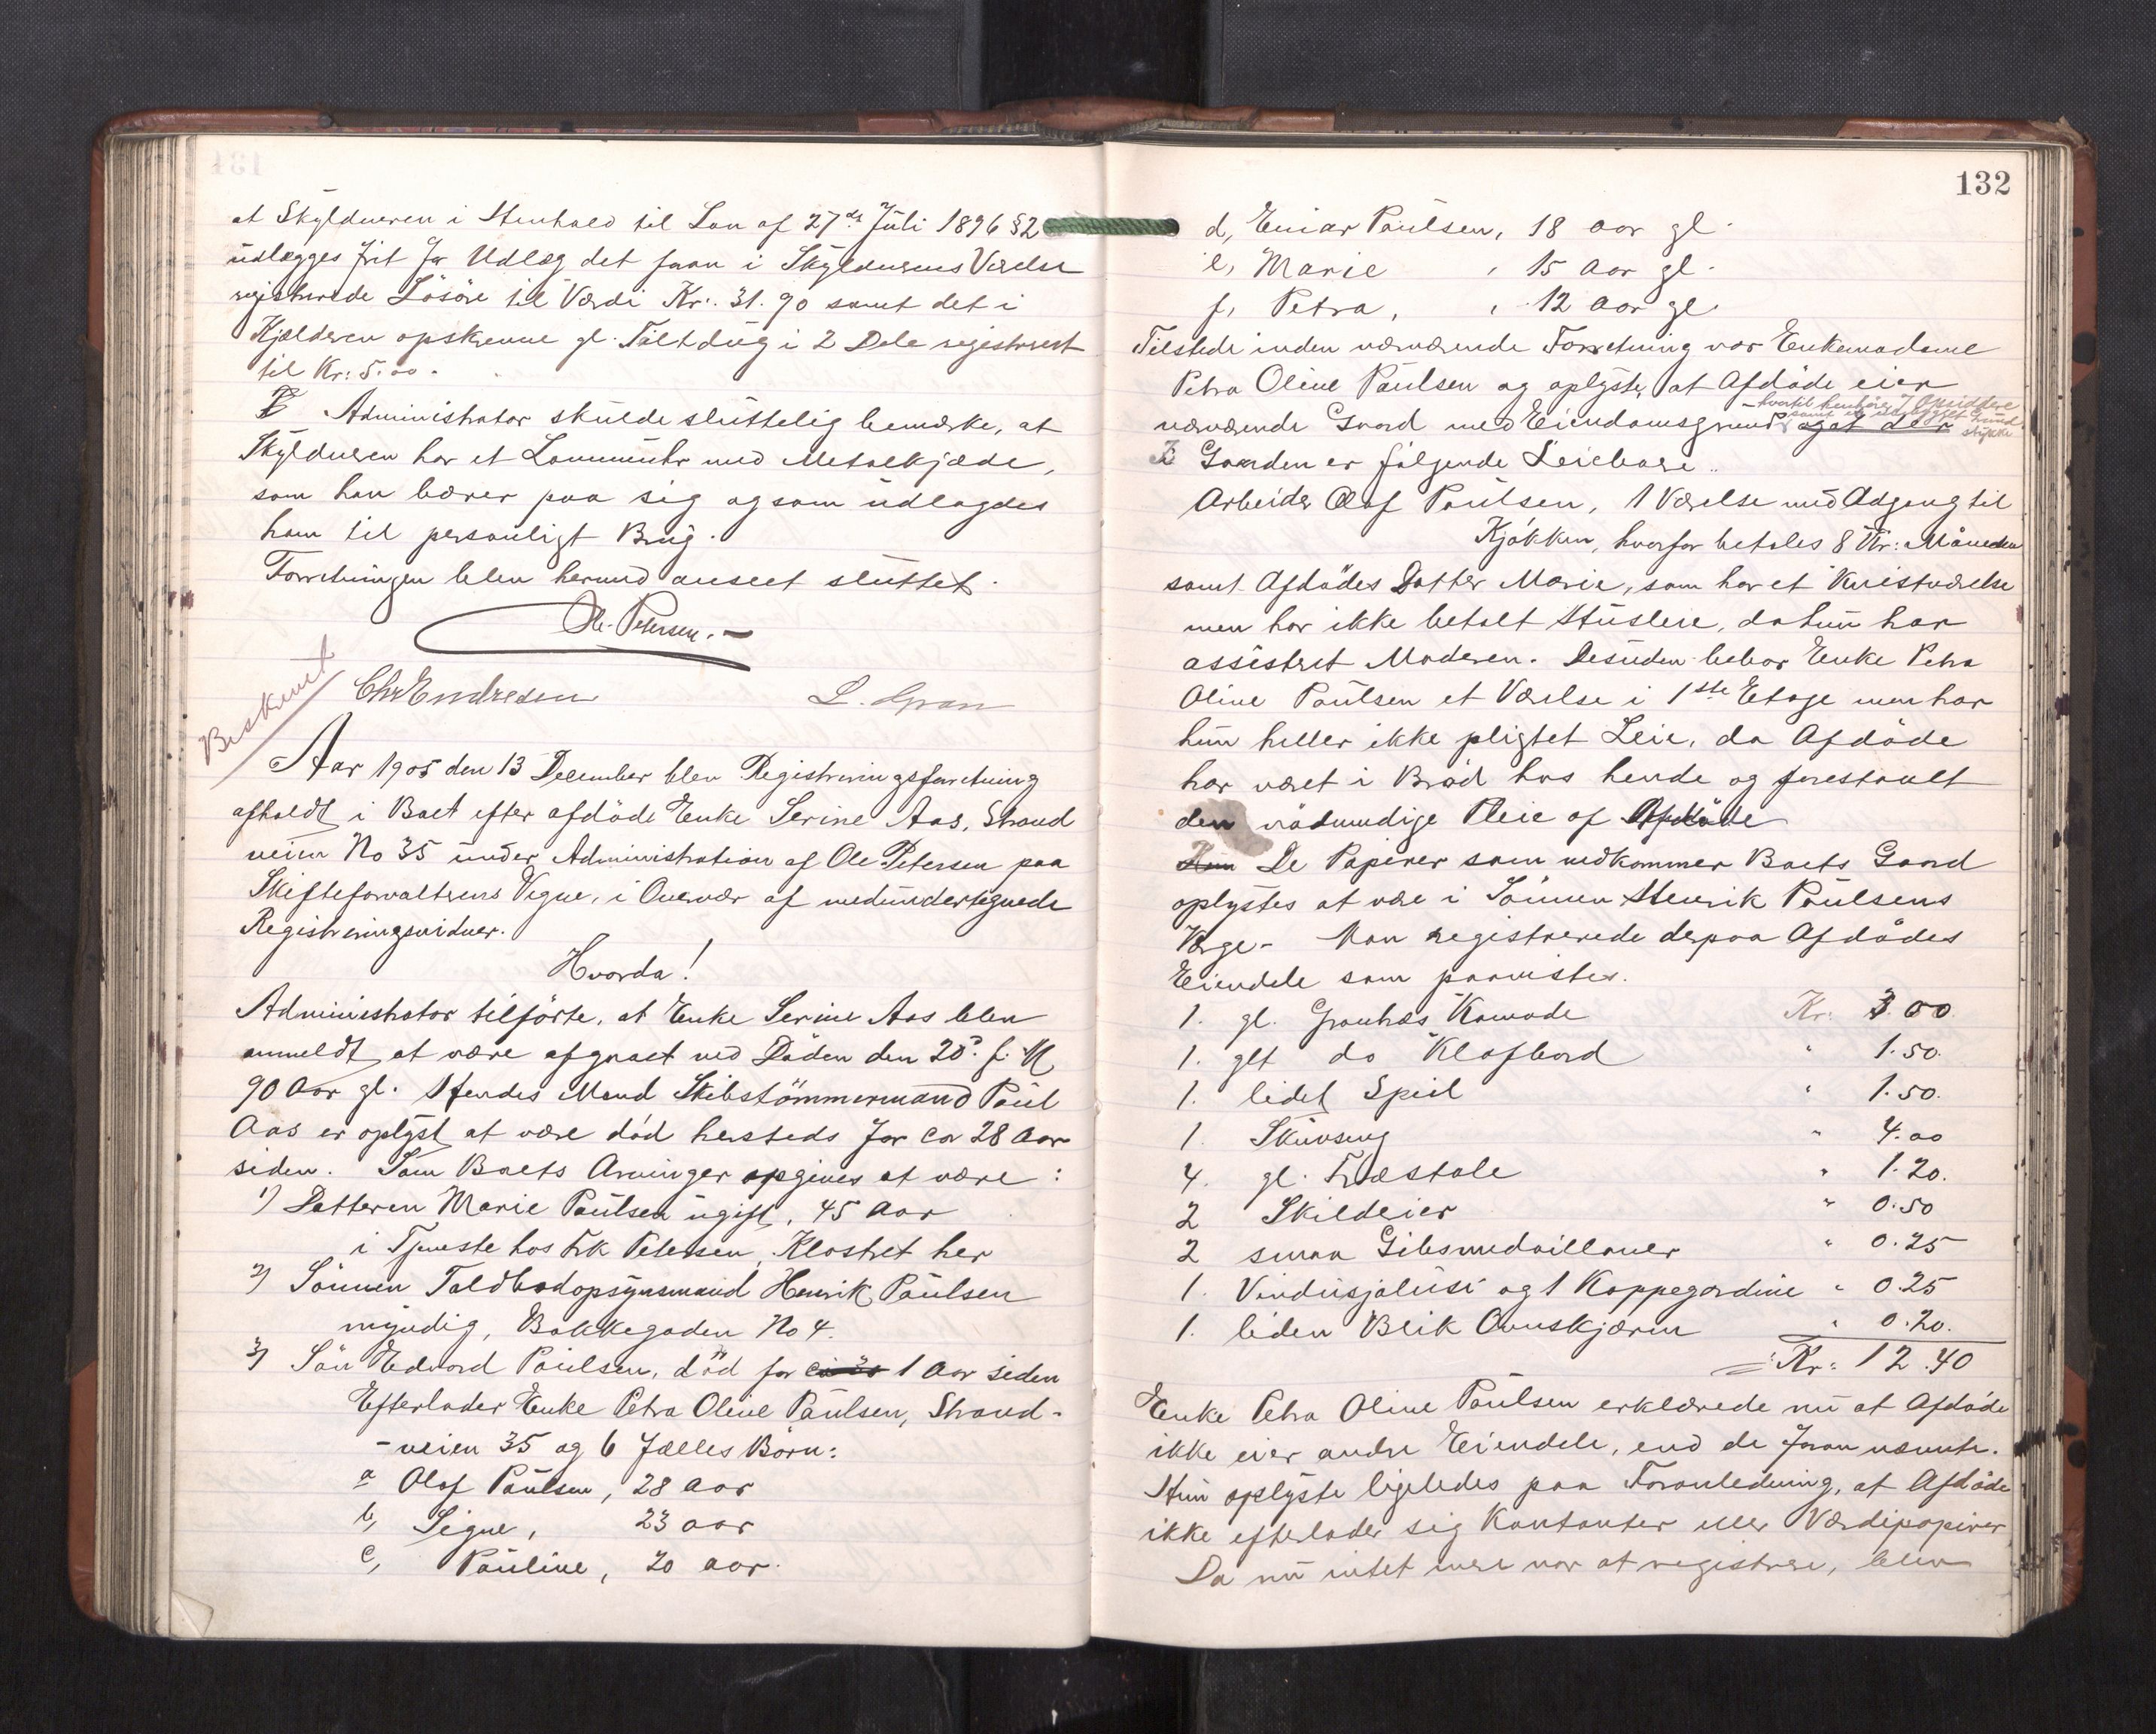 at Skyldneren i Henhold til Lov af 27de Juli 1896 § 2
udlægges frit for Udlæg det foran i Skyldnerens Værelse
registrerede Lösöre til Værdi Kr. 31.90 samt det i
Kjælderen opskrevne gl. Teltdug i 2 Dele registreret
til Kr: 5.00.
Administrator skulde sluttelig bemærke, at
Skyldneren har et Lommeuhr med Metalkjæde,
som han bærer paa sig og som udlagdes
ham til personligt Brug.
Forretningen blev hermed anseet sluttet.
Ole Petersen.
Chr Endresen L. Gran
Beskrevet
Aar 1905 den 13 December blev Registreringsforretning
afholdt i Boet efter afdöde Enke Serine Aas, Strand
veien No 35 under Administration af Ole Petersen paa
Skifteforvalterens Vegne, i Overvær af medundertegnede
Registreringsvidner.
Hvorda!
Administrator tilförte, at Enke Serine Aas blev
anmeldt at være afgaaet ved Döden den 28. f. M
90 Aar gl. Hendes Mand Skibstömmermand Paul
Aas er oplyst at være död hersteds for ca 28 Aar
siden. Som Boets Arvinger opgives at være:
1) Datteren Marie Paulsen ugift, 45 Aar
i Tjeneste hos Frk Petersen, Klostret her
2) Sönnen Toldbodopsynsmand Henrik Paulsen
myndig, Bakkegaden No 4.
3) Sön Edvard Paulsen, död for 1 Aar siden
Efterlader Enke Petra Oline Paulsen, Strand-
-veien 35 og 6 fælles Börn:
a Olaf Paulsen, 28 Aar
b, Signe, 23 aar
c, Pauline, 20 aar.
132
d, Einar Paulsen, 18 aar gl.
e, Marie , 15 Aar gl.
f, Petra, , 12 aar gl
Tilstede inden nærværende Forretning var Enkemadame
Petra Oline Paulsen og oplyste, at Afdöde eier
- hvortil henhörer 7 Opsiddere
samt et udbygget Grund
stykke
nærværende Gaard med Eiendomsgrund og at der
I Gaarden er fölgende Leieboere.
Arbeider Olaf Paulsen, 1 Værelse med Adgang til
Kjökken, hvorfor betales 8 Kr: Måneden
samt Afdödes Datter Marie, som har et Kvistværelse
men har ikke betalt Husleie, da hun har
assisteret Moderen. Desuden bebor Enke Petra
Oline Paulsen et Værelse i 1ste Etage men har
hun heller ikke pligtet Leie, da Afdöde
har været i Bröd hos hende og forestaaet
den nödvendige Pleie af Afdöde
Hun De Papirer som vedkommer Boets Gaard
oplystes at være i Sönnen Henrik Paulsens
Værge- Man registrerede derpaa Afdödes
Eiendele som paavistes.
1. gl. Granhæs Komode Kr: 3.00
1. glt do Klafbord " 1.50.
1. lidet Speil " 1.50.
1. Skuvseng " 4.00
4. gl. Træstole " 1.20.
2 Skilderier " 0.50
2 smaa Gibsmedaillaner " 0.25
1. Vindusjalusi og 1 Kappegardine " 0.25
1. liden Blik Ovnskjærm " 0.20.
Kr: 12.40
Enke Petra Oline Paulsen erklærede nu at Afdöde
ikke eier andre Eiendele, end de foran nævnte.
Hun oplyste ligeledes paa Foranledning, at Afdöde
ikke efterlader sig Kontanter eller Værdipapirer
Da nu intet mere var at registrere, blev